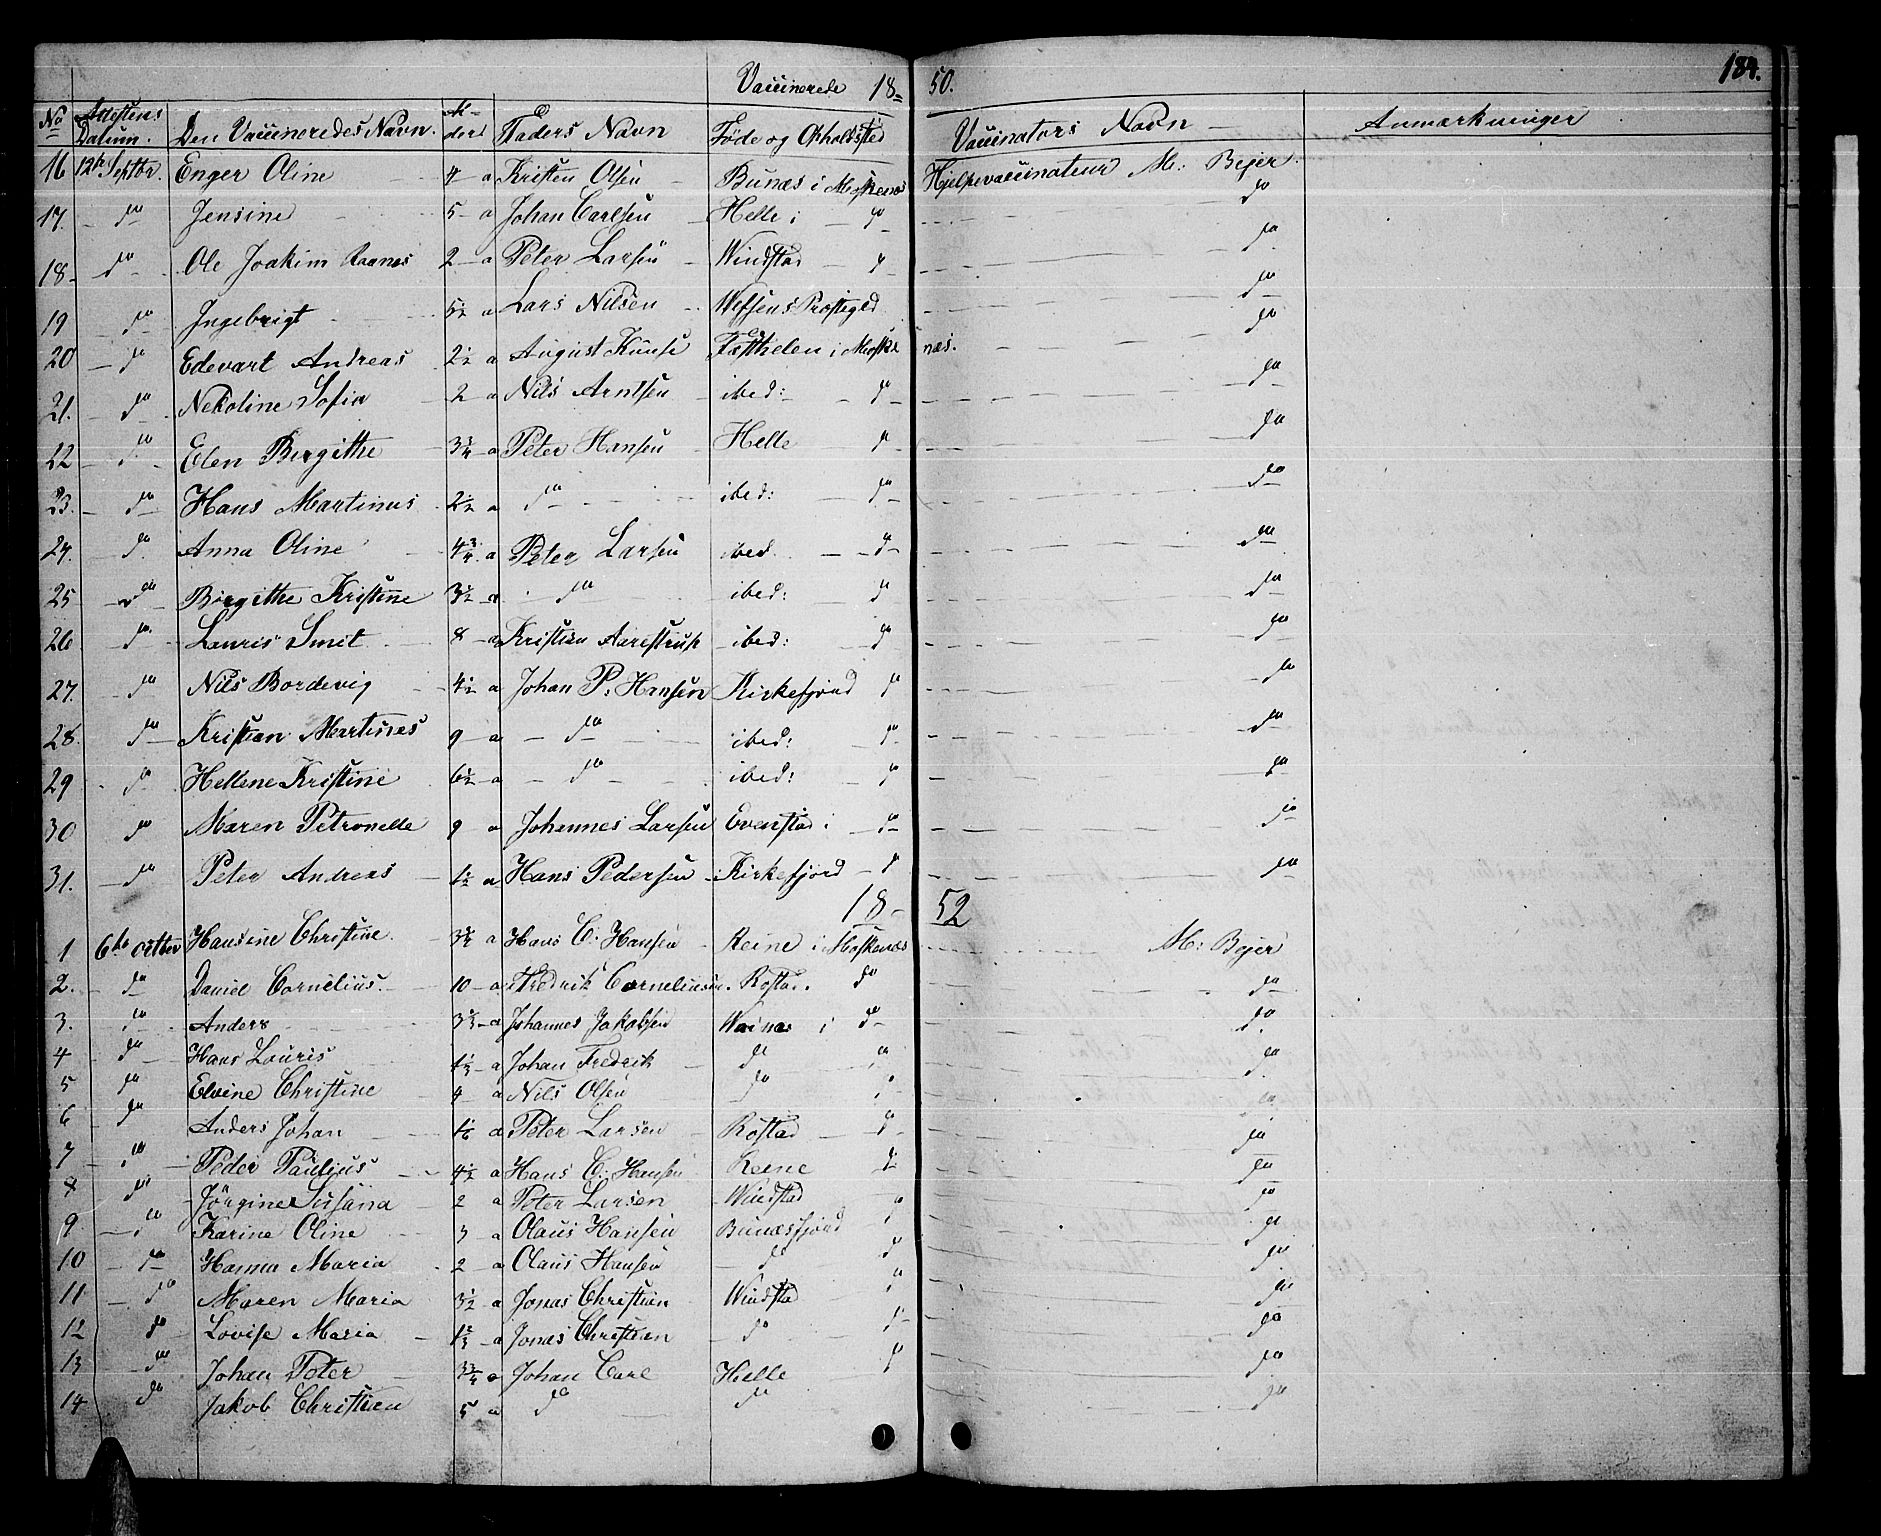 Vaccinerede 18= 50. 184.
No Attestens Datum. Den Vaccineredes Navn. Alder Faders Navn Føde og Opholdssted Vaccinators Navn Anmærkninger
16 12te Septbr. Enger Oline 4 a Kristen Olsen Bunæs i Moskenæs Hjelpevaccinateur M: Bejer
17. do Jensine 5 a Johan Carlsen Helle i do do
18 do Ole Joakim 2 a Peter Larsen Windstad do do
19 do Ingebrigt 5½ a Lars Nilsen Wefsens Prestegjld do
20 do Edevart Andreas 2½ a August i Moskenæs. do
21. do Nekoline Sofia 2 a Nils Arntsen ibed: do do
22 do Elen Birgithe 3¼ a Peter Hansen Helle do do
23. do Hans Martinus 2½ a do ibed: do do
24. do Anna Oline 4¾ a Peter Larsen ibed do do
25 do Birgithe Kristine 3½ a do ibed: do do
26 do Lauris Smit 8 a Kristian Aarestrup ibed: do do
27. do Nils Bordevig 4½ a Johan P: Hansen Kirkefjord do do
28. do Kristian Martines 9 a do ibed: do do
29 do Hellene Kristine 6½ a do ibed: do do
30 do Maren Petronelle 9 a Johannes Larsen Evenstad i do do
31. do Peter Andreas ½ a Hans Pedersen Kirkefjord do do
18- 52
1 6te octber Hansine Christine 3¾ a Hans C: Hansen Reine i Moskenæs M: Bejer
2. do Daniel Cornelius 10 a Fredrik Corneliusen. Rostad. do do
3. do Anders a Johannes Jakobsen i do do
4 do Hans Louris a Johan Fredrik do do do
5 do Elvine Christine 4 a Nils Olsen do do do
6 do Anders Johan a Peter Larsen Rostad do do
7 do Peder Paulius 4½ a Hans C: Hansen Reine do do
8 do Jörgine Susana 2 a Peter Larsen Windstad do do
9 do Karine Oline 3 a Olaus Hansen Bunæsfjord do do
10 do Hanna Maria 2 a Olaus Hansen do do do
11 do Maren Maria 3½ a Jonas Christian Windstad do do
12 do Lovise Maria a Jonas Christian do do do
13 do Johan Peter 3¾ a Johan Carl Helle do do
14 do Jakob Christian 5 a do do do